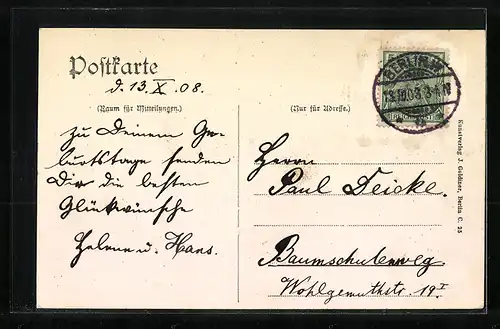 Postkarte
d. 13. X. 08.
(Raum für Mitteilungen.)
(Nur für Adresse.)
Zu Deinem Ge-
burtstage senden
Dir die besten
Glückwünsche
Helene u. Hans.
Herrn
Paul Deicke.
Baumschulenweg
Wohlgemuthstr. 19 I
BERLIN
13.10.08. 3-4 N
Kunstverlag J. Goldiner, Berlin C. 25